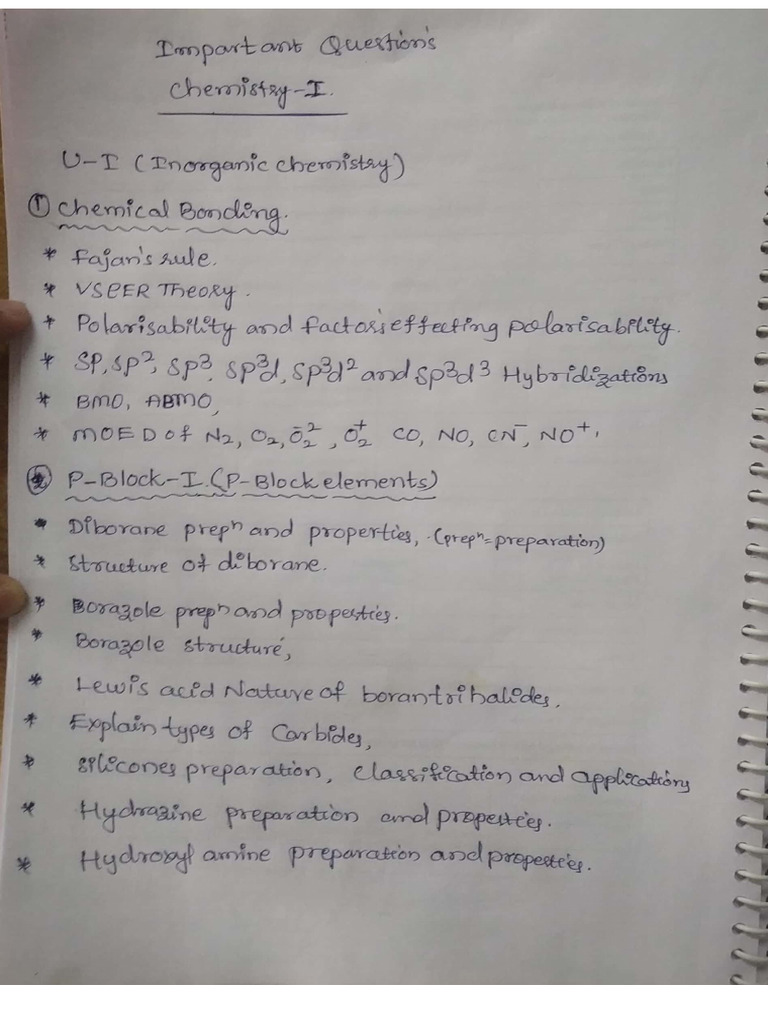 Important Question's
Chemistry-I.
U-I (Inorganic chemistry)
① Chemical Bonding.
* Fajan's rule.
* VSEPR Theory.
* Polarisability and factors effecting polarisability.
* SP, SP², SP³, SP³d, SP³d² and SP³d³ Hybridizations
* BMO, ABMO,
* MOED of N₂, O₂, O₂⁻², O₂⁺ CO, NO, CN⁻, NO⁺,
② P-Block-I. (P-Block elements)
* Diborane prepⁿ and properties, (prepⁿ=preparation)
* Structure of diborane.
* Borazole prepⁿ and properties.
* Borazole structure,
* Lewis acid Nature of borantrihalides.
* Explain types of Carbides,
* Silicones preparation, Classification and applications
* Hydrazine preparation and properties.
* Hydroxyl amine preparation and properties.